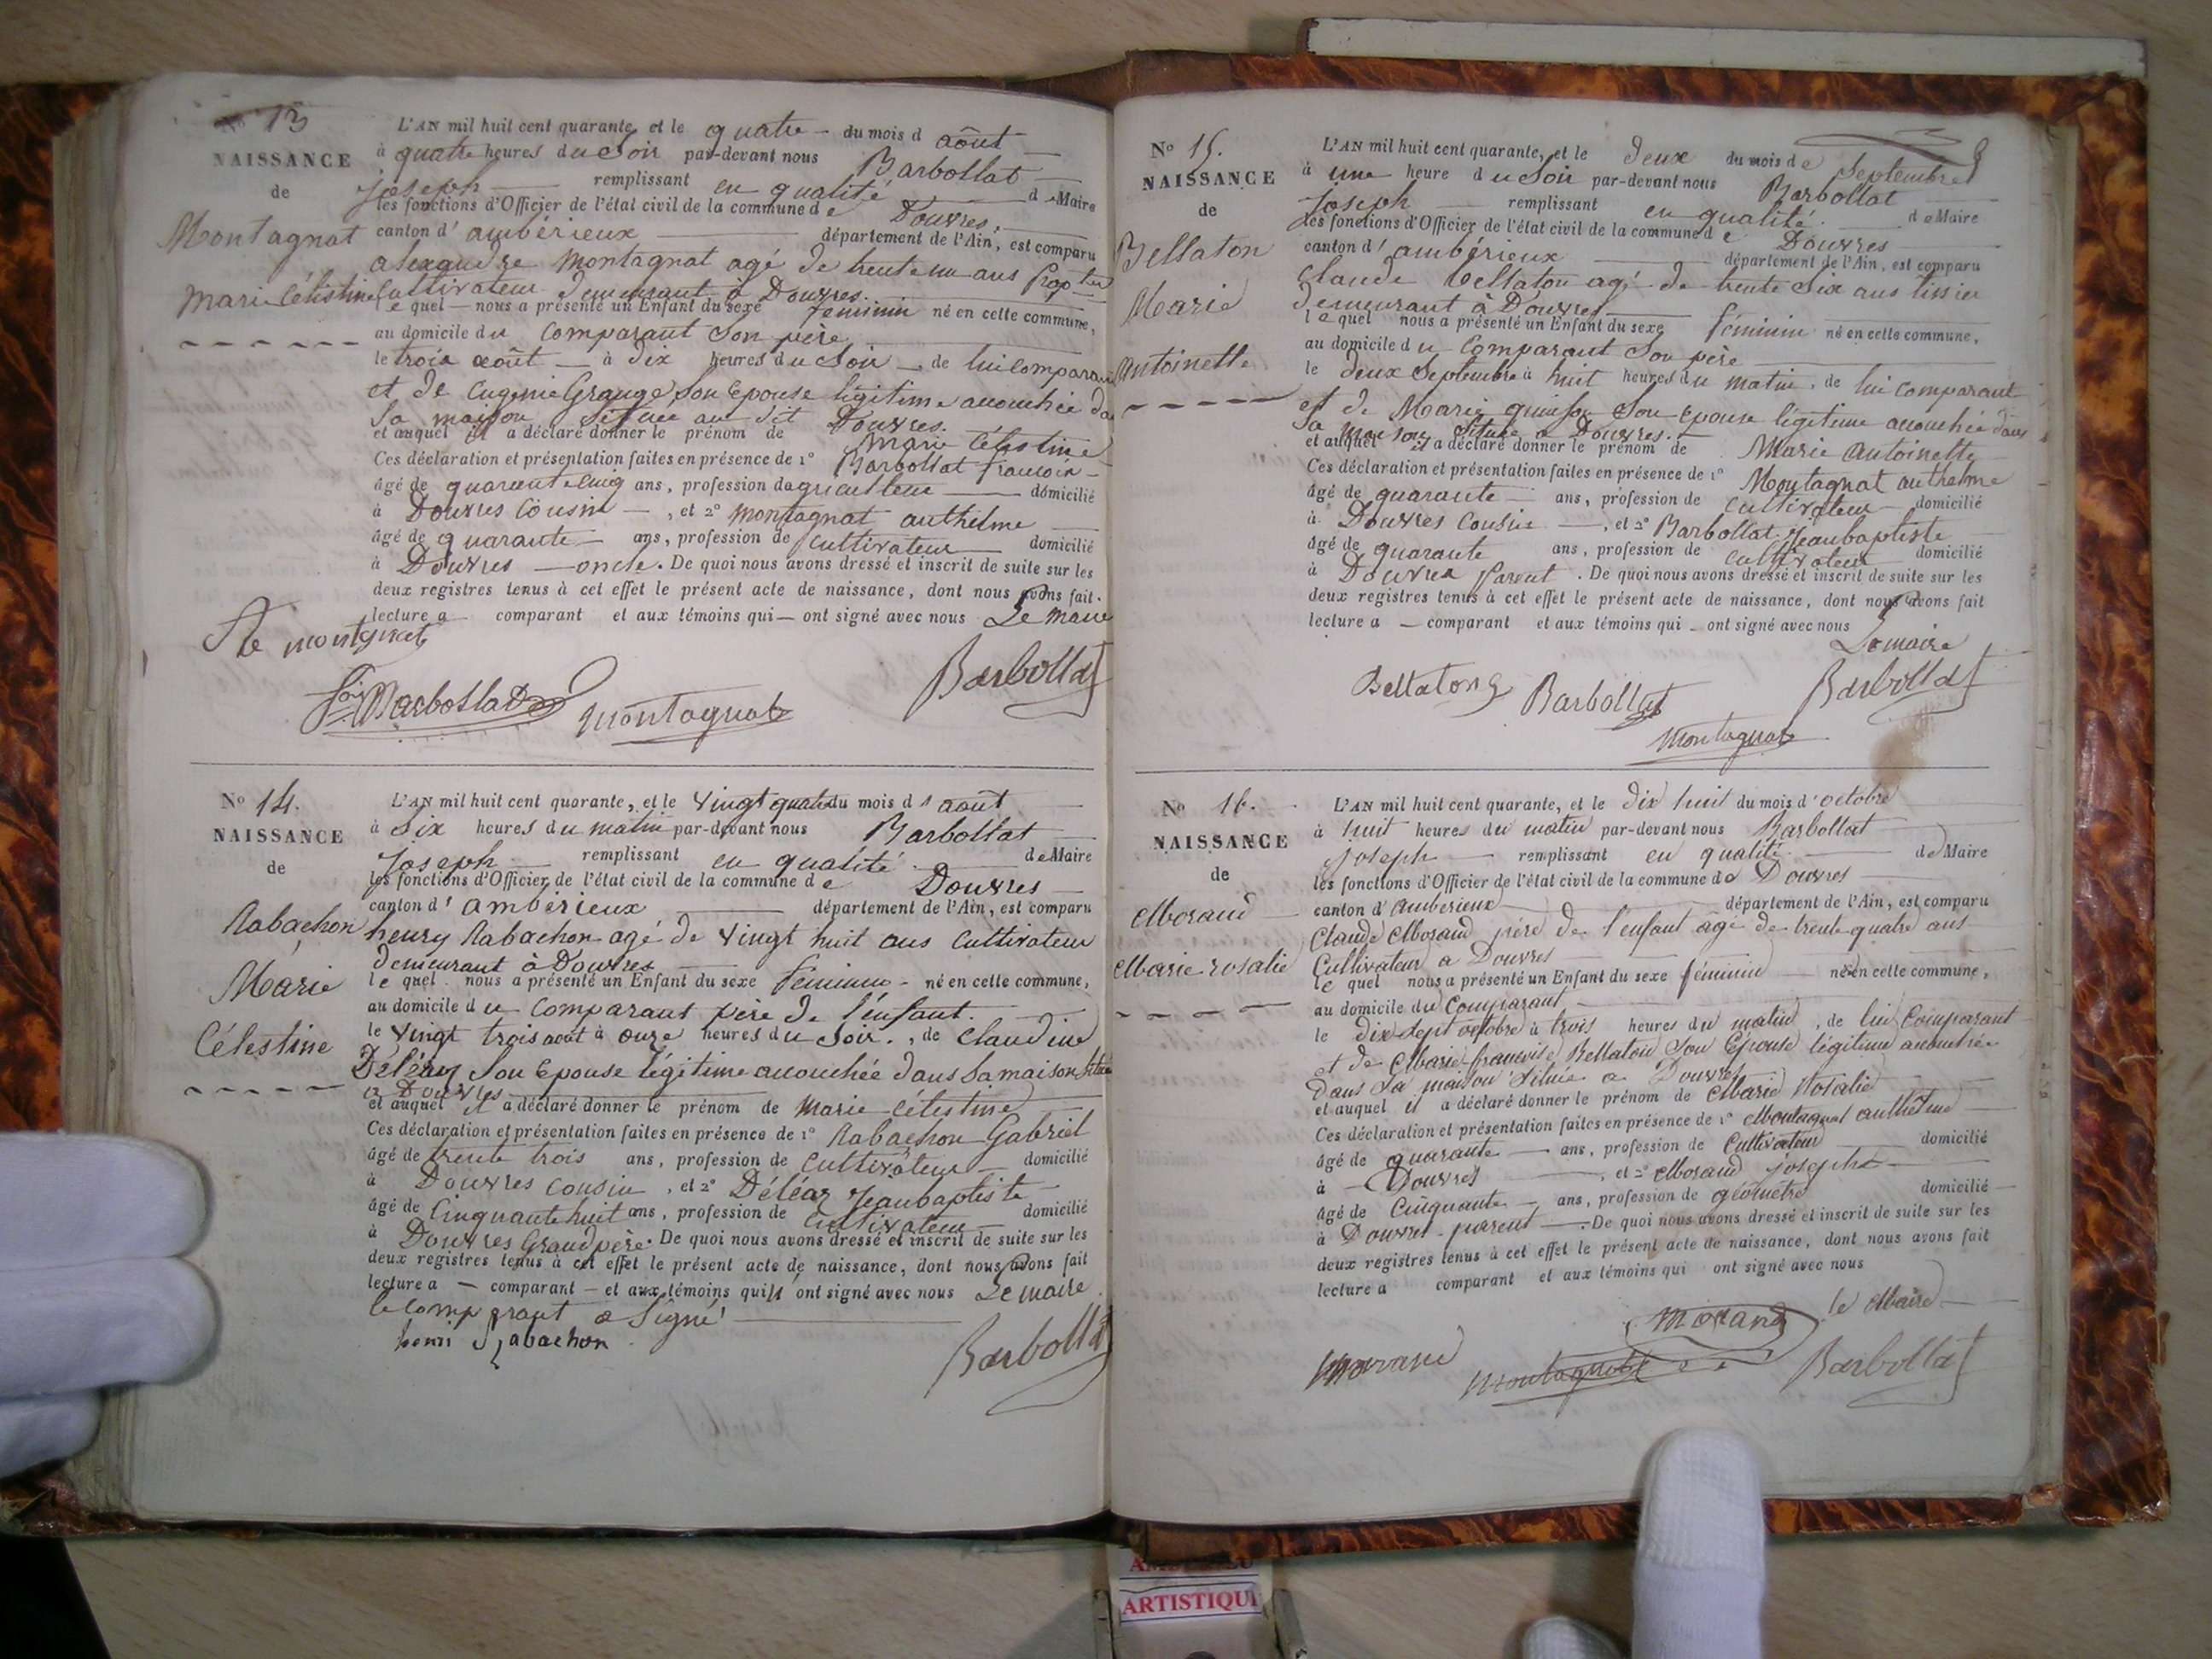 No 13
NAISSANCE
de
Montagnat
Marie Célestine
L'AN mil huit cent quarante, et le quatre du mois d août
à quatre heures du Soir par-devant nous Barbollat
Joseph remplissant en qualité de Maire
les fonctions d'Officier de l'état civil de la commune de Douvres.
canton d' ambérieux département de l'Ain, est comparu
alexandre Montagnat agé de trente un ans Prop.
Cultivateur demeurant à Douvres.
lequel nous a présenté un Enfant du sexe féminin né en cette commune,
au domicile du Comparant Son père
le trois août à dix heures du Soir de lui Comparant
et de Eugénie Grange Son Epouse légitime accouchée
Sa maison Située au dit Douvres.
et auquel il a déclaré donner le prénom de Marie Célestine
Ces déclaration et présentation faites en présence de 1° Barbollat françois
âgé de quarente cinq ans, profession dagriculteur domicilié
à Douvres Cousin, et 2° montagnat anthelme
âgé de quarante ans, profession de cultivateur domicilié
à Douvres oncle. De quoi nous avons dressé et inscrit de suite sur les
deux registres tenus à cet effet le présent acte de naissance, dont nous avons fait
lecture a comparant et aux témoins qui ont signé avec nous Le Maire
montagnat
Barbollat
Barbollat
montagnat
No 14.
NAISSANCE
de
Rabachon
Marie
Célestine
L'AN mil huit cent quarante, et le Vingt quatre du mois d' août
à Six heures du matin par-devant nous Barbollat
Joseph remplissant en qualité de Maire
les fonctions d'Officier de l'état civil de la commune de Douvres
canton d' ambérieux département de l'Ain, est comparu
henry Rabachon agé de Vingt huit ans Cultivateur
demeurant à Douvres
lequel nous a présenté un Enfant du sexe féminin né en cette commune,
au domicile du comparant père de l'enfant.
le Vingt trois août à onze heures du Soir, de Claudine
Déléaz Son Epouse légitime accouchée dans Sa maison Située
a Douvres
et auquel il a déclaré donner le prénom de Marie Célestine
Ces déclaration et présentation faites en présence de 1° Rabachon Gabriel
âgé de trente trois ans, profession de Cultivateur domicilié
à Douvres cousin, et 2° Déléaz Jeanbaptiste
âgé de Cinquante huit ans, profession de Cultivateur domicilié
à Douvres Grand père. De quoi nous avons dressé et inscrit de suite sur les
deux registres tenus à cet effet le présent acte de naissance, dont nous avons fait
lecture a comparant et aux témoins qui ont signé avec nous Le maire
le comparant a Signé
henri Rabachon
Barbollat
No 15.
NAISSANCE
de
Bellaton
Marie
Antoinette
L'AN mil huit cent quarante, et le deux du mois de Septembre
à une heure du Soir par-devant nous Barbollat
Joseph remplissant en qualité de Maire
les fonctions d'Officier de l'état civil de la commune de Douvres
canton d' ambérieux département de l'Ain, est comparu
Claude Bellaton agé de trente Six ans tissier
demeurant à Douvres
lequel nous a présenté un Enfant du sexe féminin né en cette commune,
au domicile du Comparant Son père
le deux Septembre à huit heures du matin, de lui comparant
et de Marie Son Epouse légitime accouchée dans
Sa maison Située a Douvres.
et auquel il a déclaré donner le prénom de Marie Antoinette
Ces déclaration et présentation faites en présence de 1° Montagnat anthelme
âgé de quarante ans, profession de Cultivateur domicilié
à Douvres Cousin, et 2° Barbollat Jeanbaptiste
âgé de quarante ans, profession de cultivateur domicilié
à Douvres Parent. De quoi nous avons dressé et inscrit de suite sur les
deux registres tenus à cet effet le présent acte de naissance, dont nous avons fait
lecture a comparant et aux témoins qui ont signé avec nous
Le maire
Bellaton
Barbollat
Barbollat
Montagnat
No 16.
NAISSANCE
de
Morand
Marie rosalie
L'AN mil huit cent quarante, et le dix huit du mois d' octobre
à huit heures du matin par-devant nous Barbollat
joseph remplissant en qualité de Maire
les fonctions d'Officier de l'état civil de la commune de Douvres
canton d' amberieux département de l'Ain, est comparu
Claude Morand père de l'enfant âgé de trente quatre ans
Cultivateur a Douvres
le quel nous a présenté un Enfant du sexe féminin né en cette commune,
au domicile du Comparant
le dix Sept octobre à trois heures du matin, de lui Comparant
et de Marie françoise Bellaton Son Epouse légitime accouchée
Dans Sa maison Située a Douvres
et auquel il a déclaré donner le prénom de Marie Rosalie
Ces déclaration et présentation faites en présence de 1° Montagnat anthelme
âgé de quarante ans, profession de Cultivateur domicilié
à Douvres, et 2° Morand joseph
âgé de Cinquante ans, profession de géomètre domicilié
à Douvres parent. De quoi nous avons dressé et inscrit de suite sur les
deux registres tenus à cet effet le présent acte de naissance, dont nous avons fait
lecture a comparant et aux témoins qui ont signé avec nous
Morand le Maire
Morand
Montagnat
Barbollat
ARTISTIQU